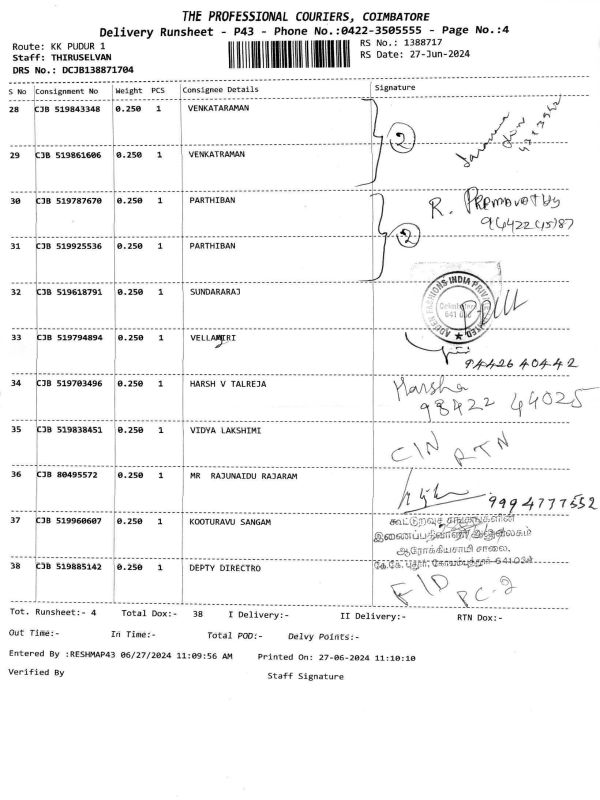 THE PROFESSIONAL COURIERS, COIMBATORE
Delivery Runsheet - P43 - Phone No.:0422-3505555 - Page No.:4
Route: KK PUDUR 1
RS No.: 1388717
Staff: THIRUSELVAN
RS Date: 27-Jun-2024
DRS No.: DCJB138871704
S No Consignment No Weight PCS Consignee Details Signature
28 CJB 519843348 0.250 1 VENKATARAMAN
2
29 CJB 519861606 0.250 1 VENKATRAMAN
30 CJB 519787670 0.250 1 PARTHIBAN R. Premavathy
2
31 CJB 519925536 0.250 1 PARTHIBAN
32 CJB 519618791 0.250 1 SUNDARARAJ
FASHIONS INDIA PRIVATE LIMITED
33 CJB 519794894 0.250 1 VELLAMIRI
94426 40442
34 CJB 519703496 0.250 1 HARSH V TALREJA Harsha
98422 44025
35 CJB 519838451 0.250 1 VIDYA LAKSHIMI CIN RTN
36 CJB 80495572 0.250 1 MR RAJUNAIDU RAJARAM
9994777552
37 CJB 519960607 0.250 1 KOOTURAVU SANGAM
கூட்டுறவுச் சங்கங்களின்
இணைப்பதிவாளர் அலுவலகம்
ஆரோக்கியசாமி சாலை,
கே.கே. புதூர், கோயம்புத்தூர்-641038
38 CJB 519885142 0.250 1 DEPTY DIRECTRO
F/D PC-2
Tot. Runsheet:- 4 Total Dox:- 38 I Delivery:- II Delivery:- RTN Dox:-
Out Time:- In Time:- Total POD:- Delvy Points:-
Entered By :RESHMAP43 06/27/2024 11:09:56 AM Printed On: 27-06-2024 11:10:10
Verified By Staff Signature